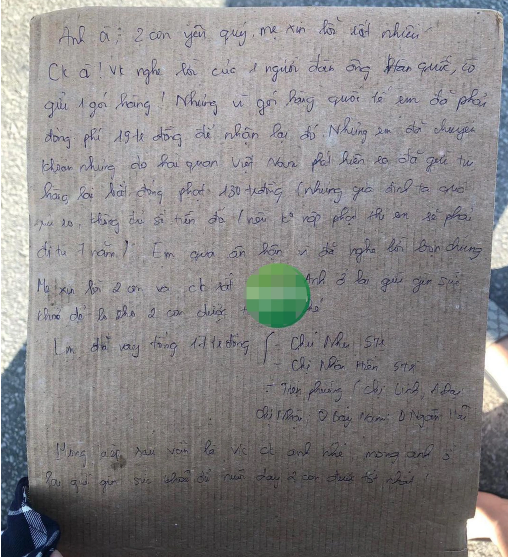 Anh à! 2 con yêu quý, mẹ xin lỗi rất nhiều
Ck à! Vk nghe lời của 1 người đàn ông Hàn quốc, có
gửi 1 gói hàng! Nhưng vì gói hàng quốc tế em đã phải
đóng phí 19 tr đồng để nhận lại đó. Nhưng em đã chuyển
khoản nhưng do hải quan Việt Nam phát hiện ra đã gửi từ
hàng lại bắt đóng phạt 130 triệu (nhưng gia đình ta quá
, không đủ số tiền đó (nếu k nộp phạt thì em sẽ phải
đi tù 7 năm)! Em quá ân hận vì đã nghe lời bọn chúng
Mẹ xin lỗi 2 con và ck rất Anh ở lại giữ gìn sức
khoẻ để lo cho 2 con được nhé
Em đã vay tổng tr đồng - Chú Như 5tr
- Chị Nhân Hiền 5tr
- Trên phường (chị Linh,
chị Nhân,
kiếp sau vẫn là vk ck anh nhé, mong anh ở
lại giữ gìn sức khoẻ để nuôi dạy 2 con được tốt nhất!